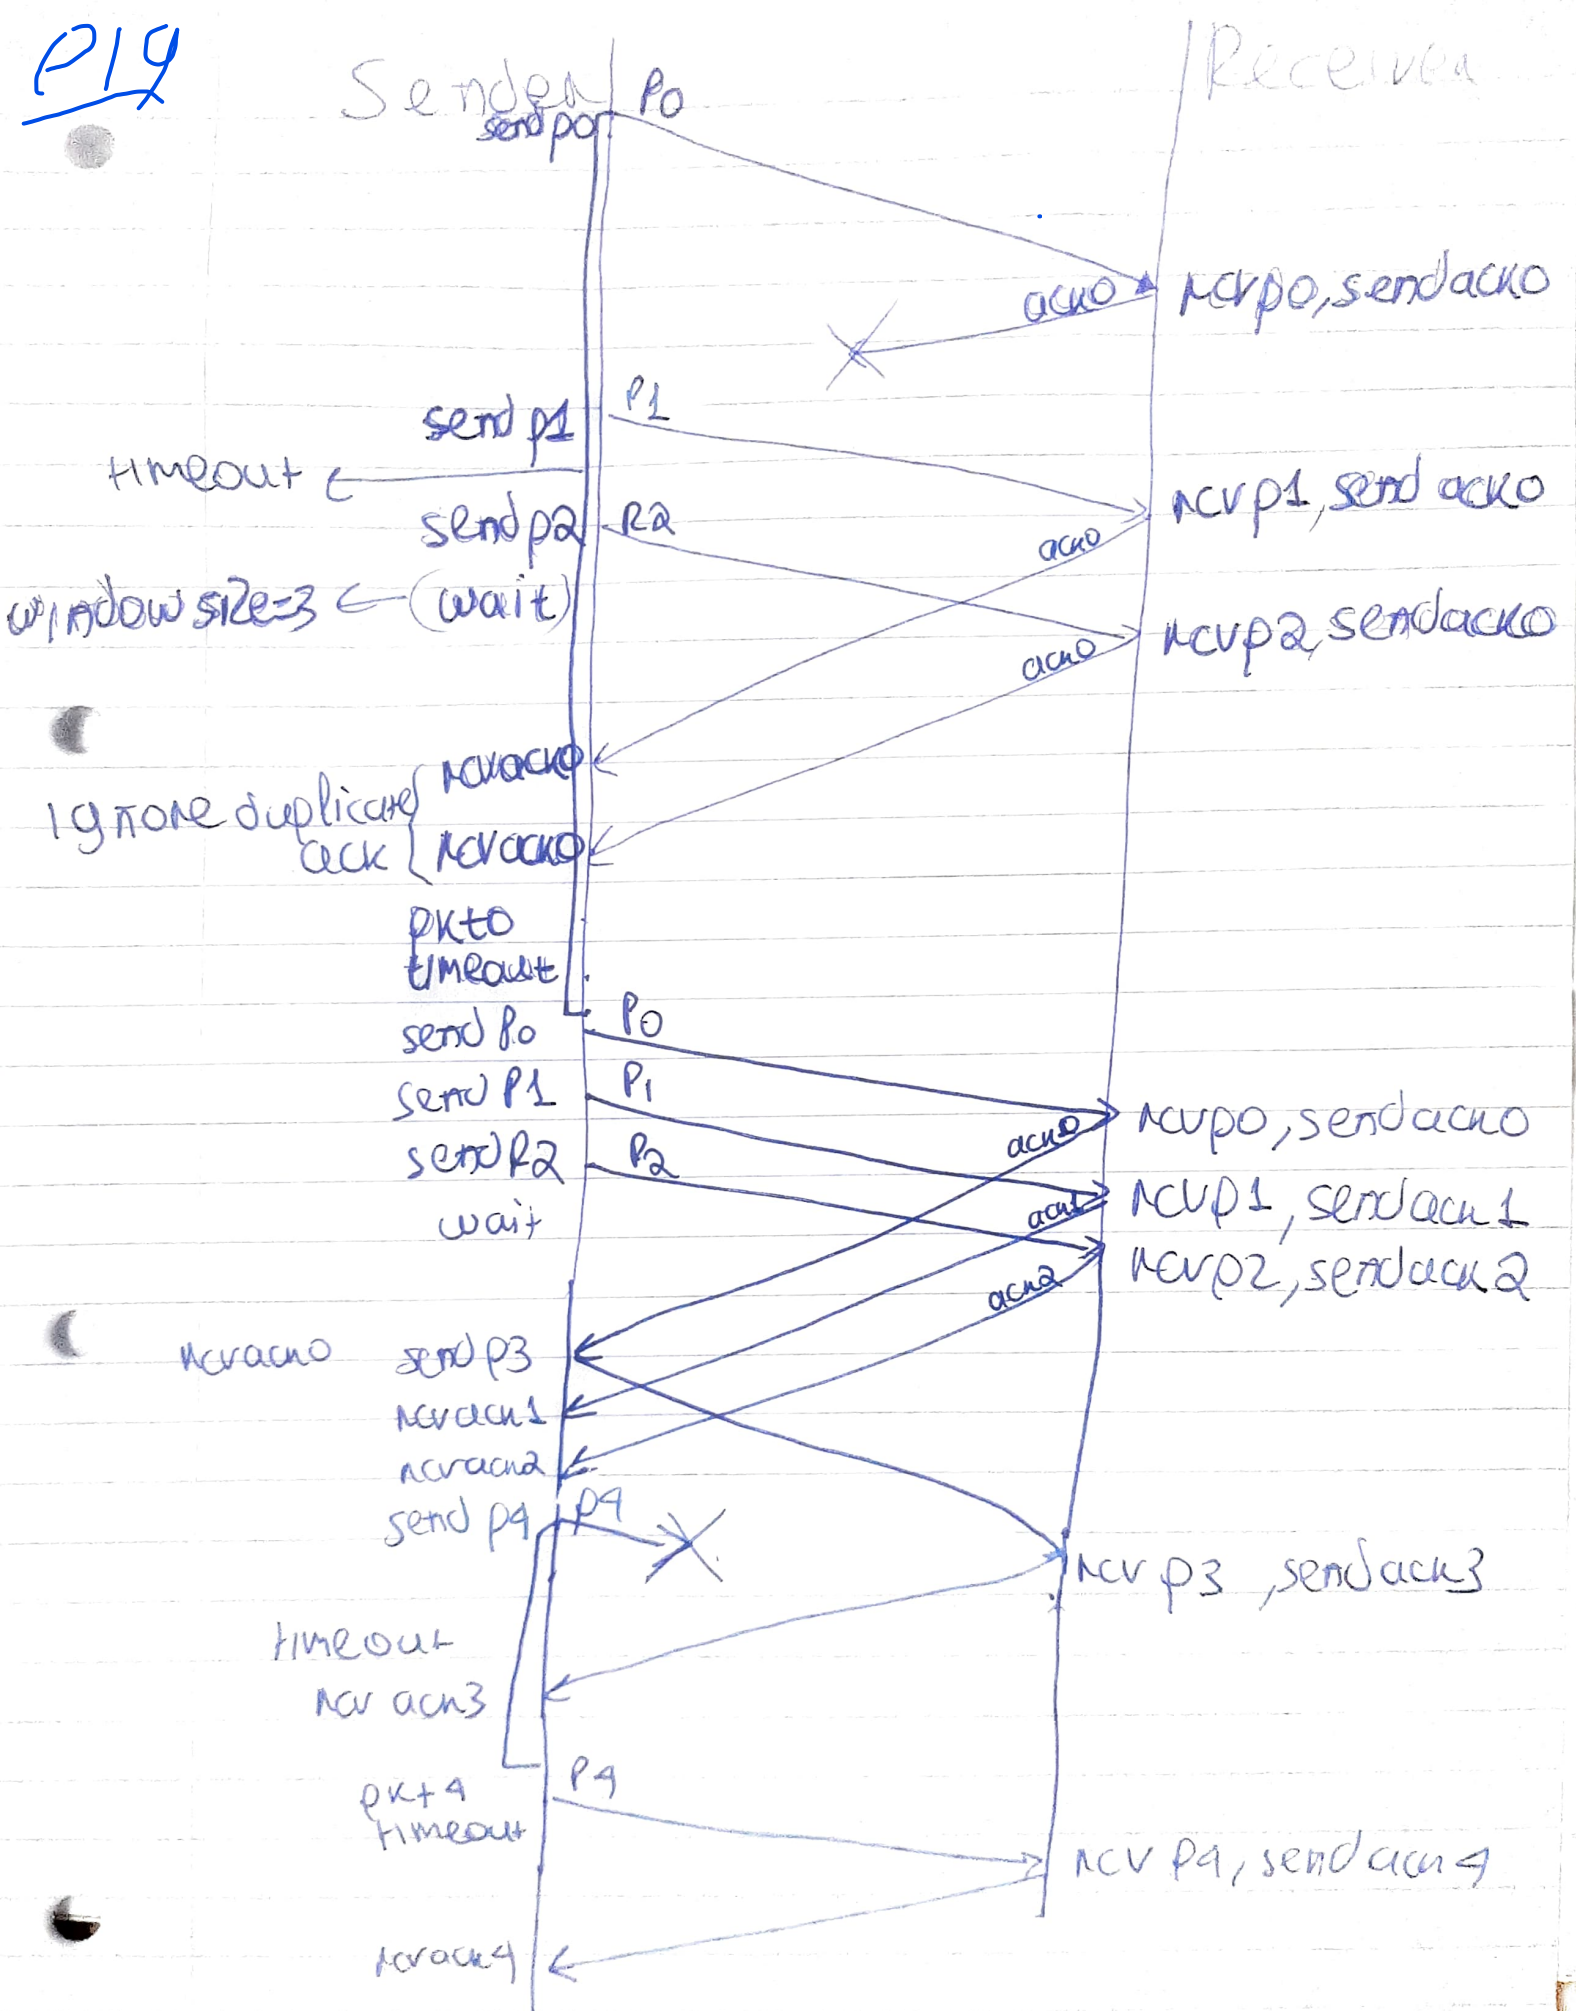 P19
Sender Receiver
send p0 P0
ack0 rcvp0, sendack0
send p1 P1
timeout
rcvp1, send ack0
send p2 P2
ack0
window size=3 (wait)
rcvp2, sendack0
ack0
rcvack0
Ignore duplicate
ack rcvack0
pkt0
timeout
send P0 P0
send P1 P1
rcvp0, sendack0
ack0
send P2 P2
rcvp1, sendack1
ack1
wait
rcvp2, sendack2
ack2
rcvack0 send p3
rcvack1
rcvack2
send p4 p4
rcv p3, sendack3
timeout
rcv ack3
P4
pkt4
timeout
rcv P4, sendack4
rcvack4